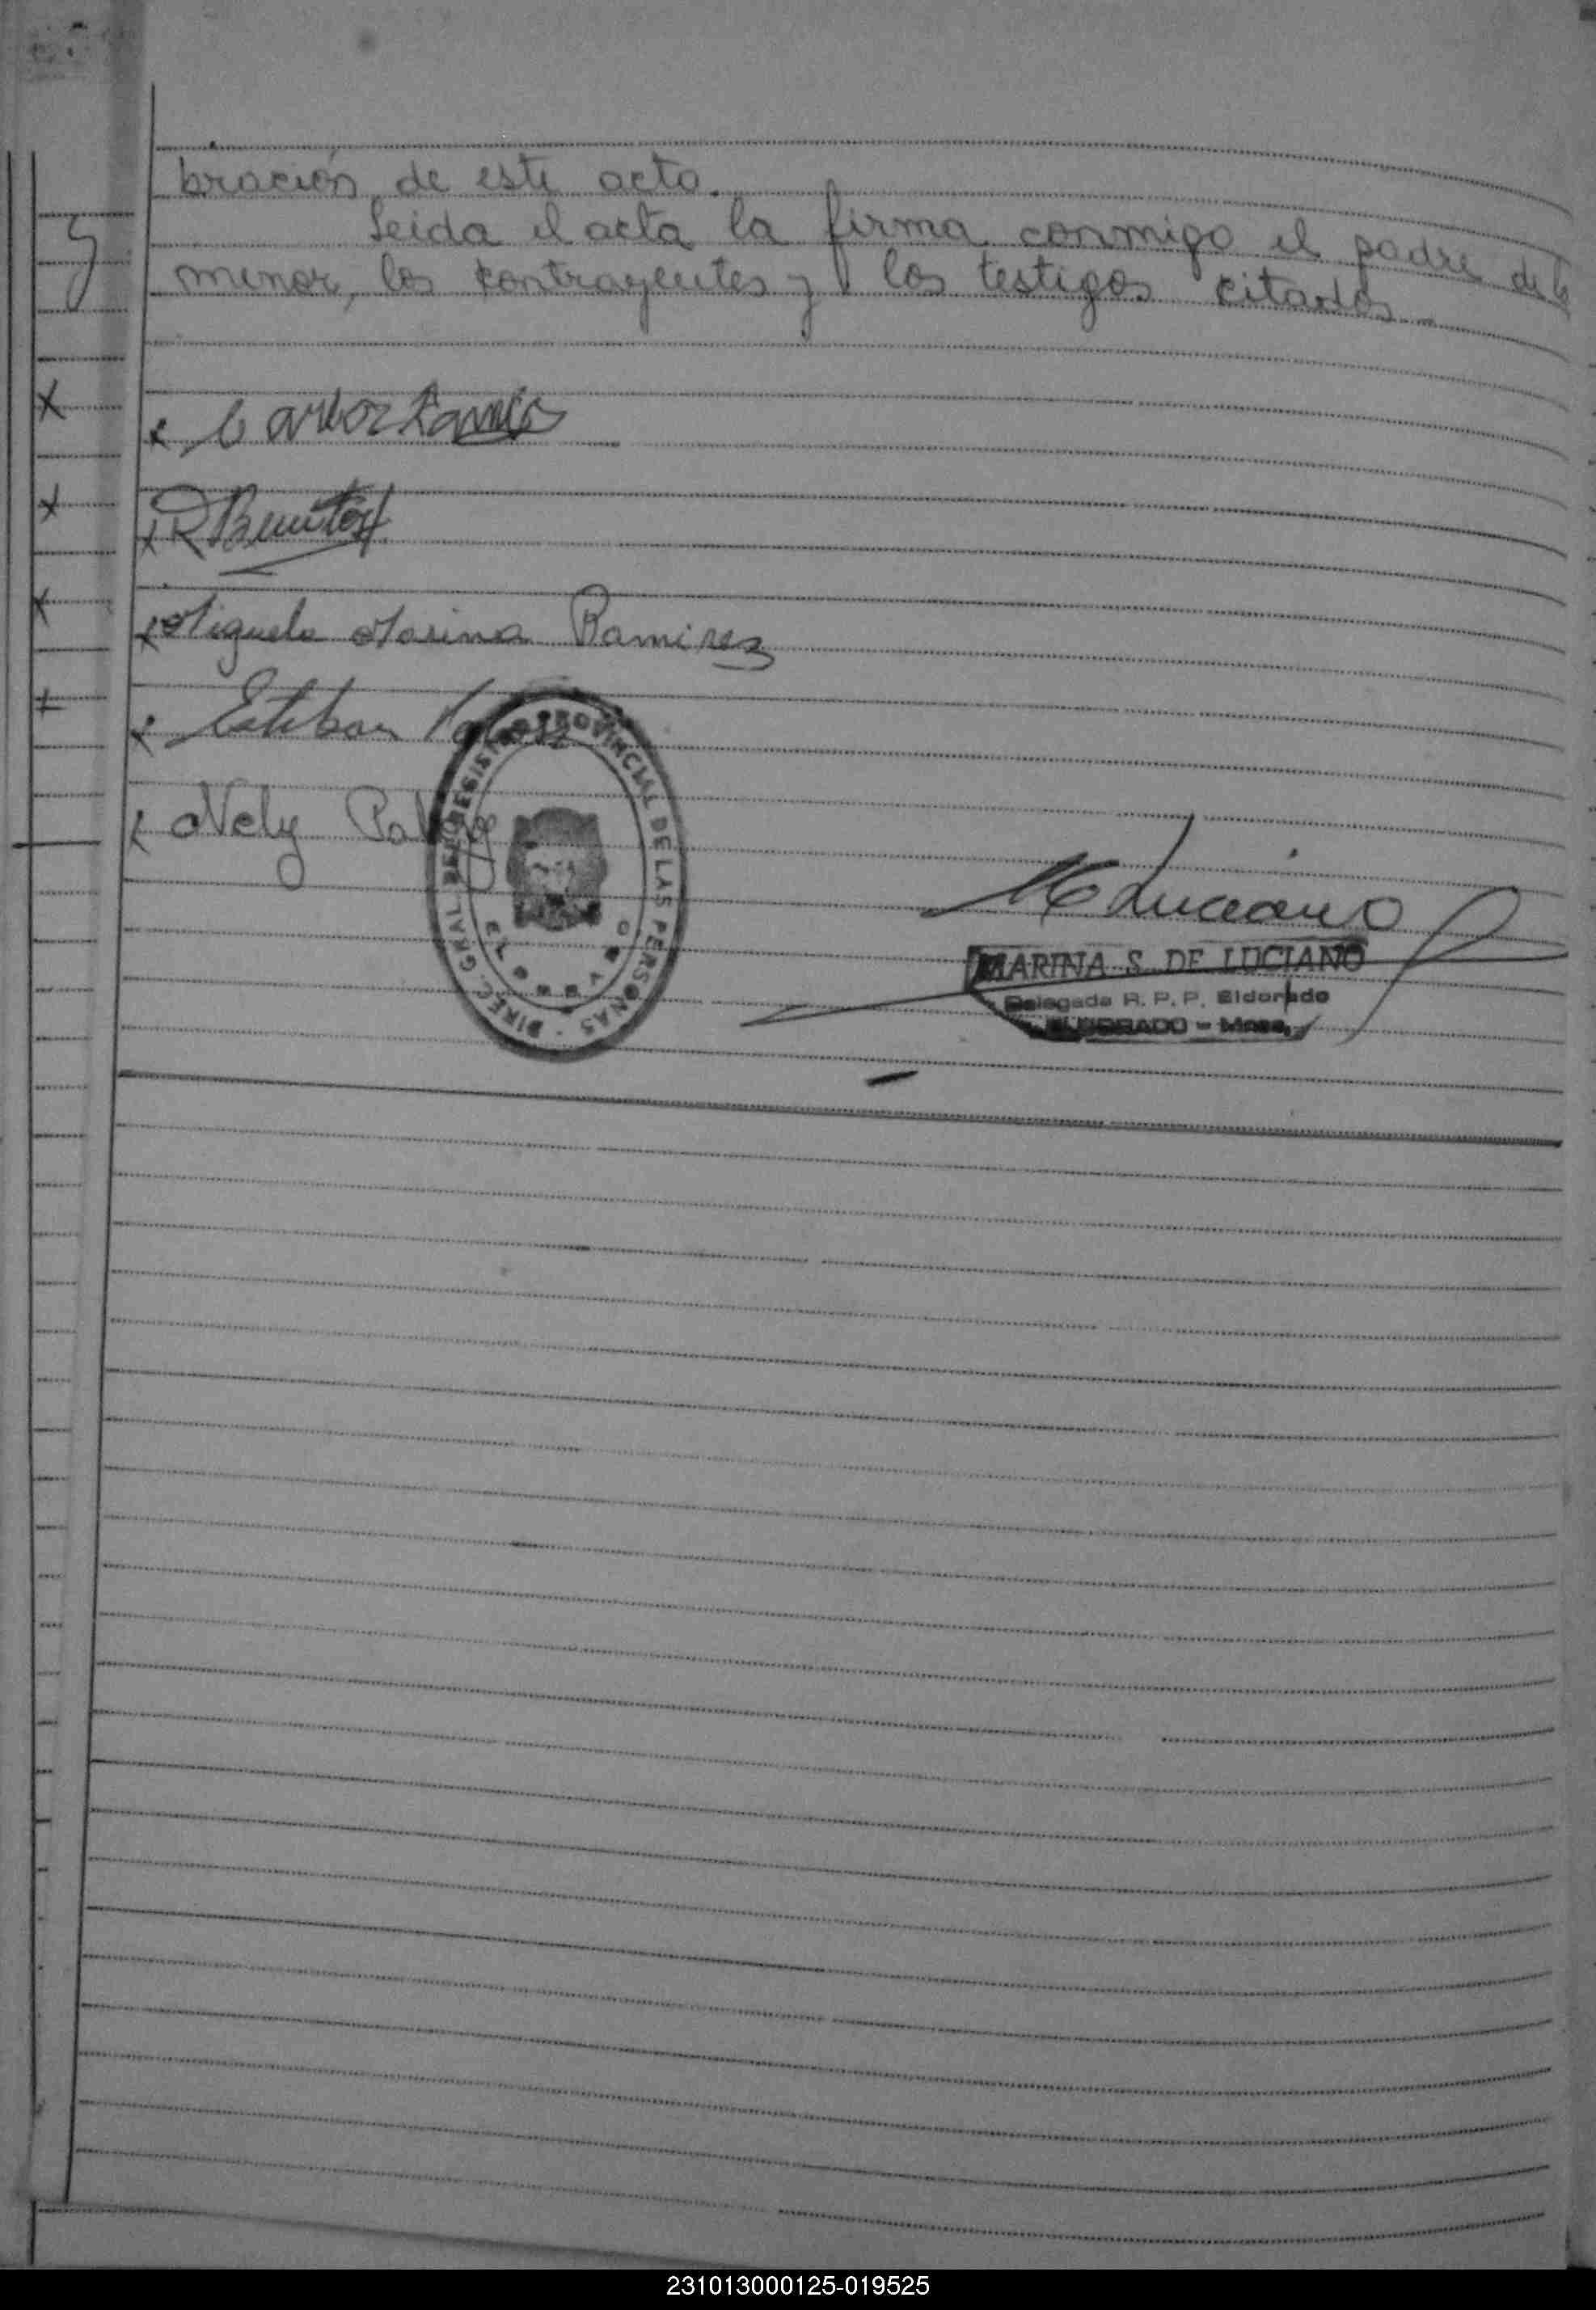 bración de este acto.
Leida el acta la firma conmigo el padre de la
menor, los contrayentes y los testigos citados
Carlos Ramirez
R Benitez
Miguela Marina Ramirez
Esteban
Nely
DIREC. GRAL. DEL REGISTRO PROVINCIAL DE LAS PERSONAS
M Luciano
MARINA S. DE LUCIANO
Delegada R. P. P. Eldorado
ELDORADO - Mnes.
231013000125-019525